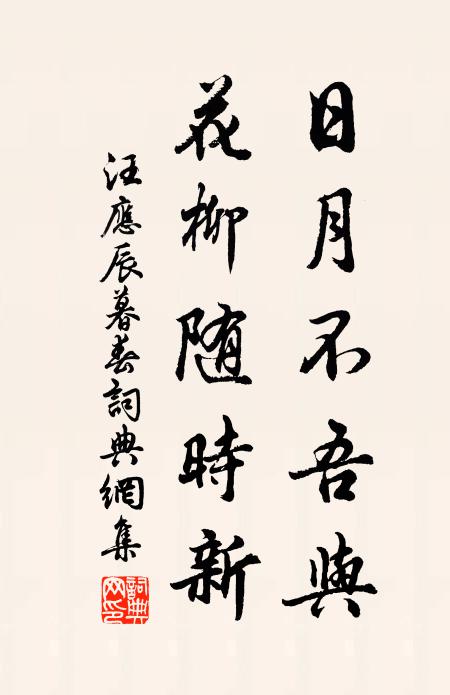 日月不吾與
花柳随時新
汪應辰暮春詞典網集
詞典網印